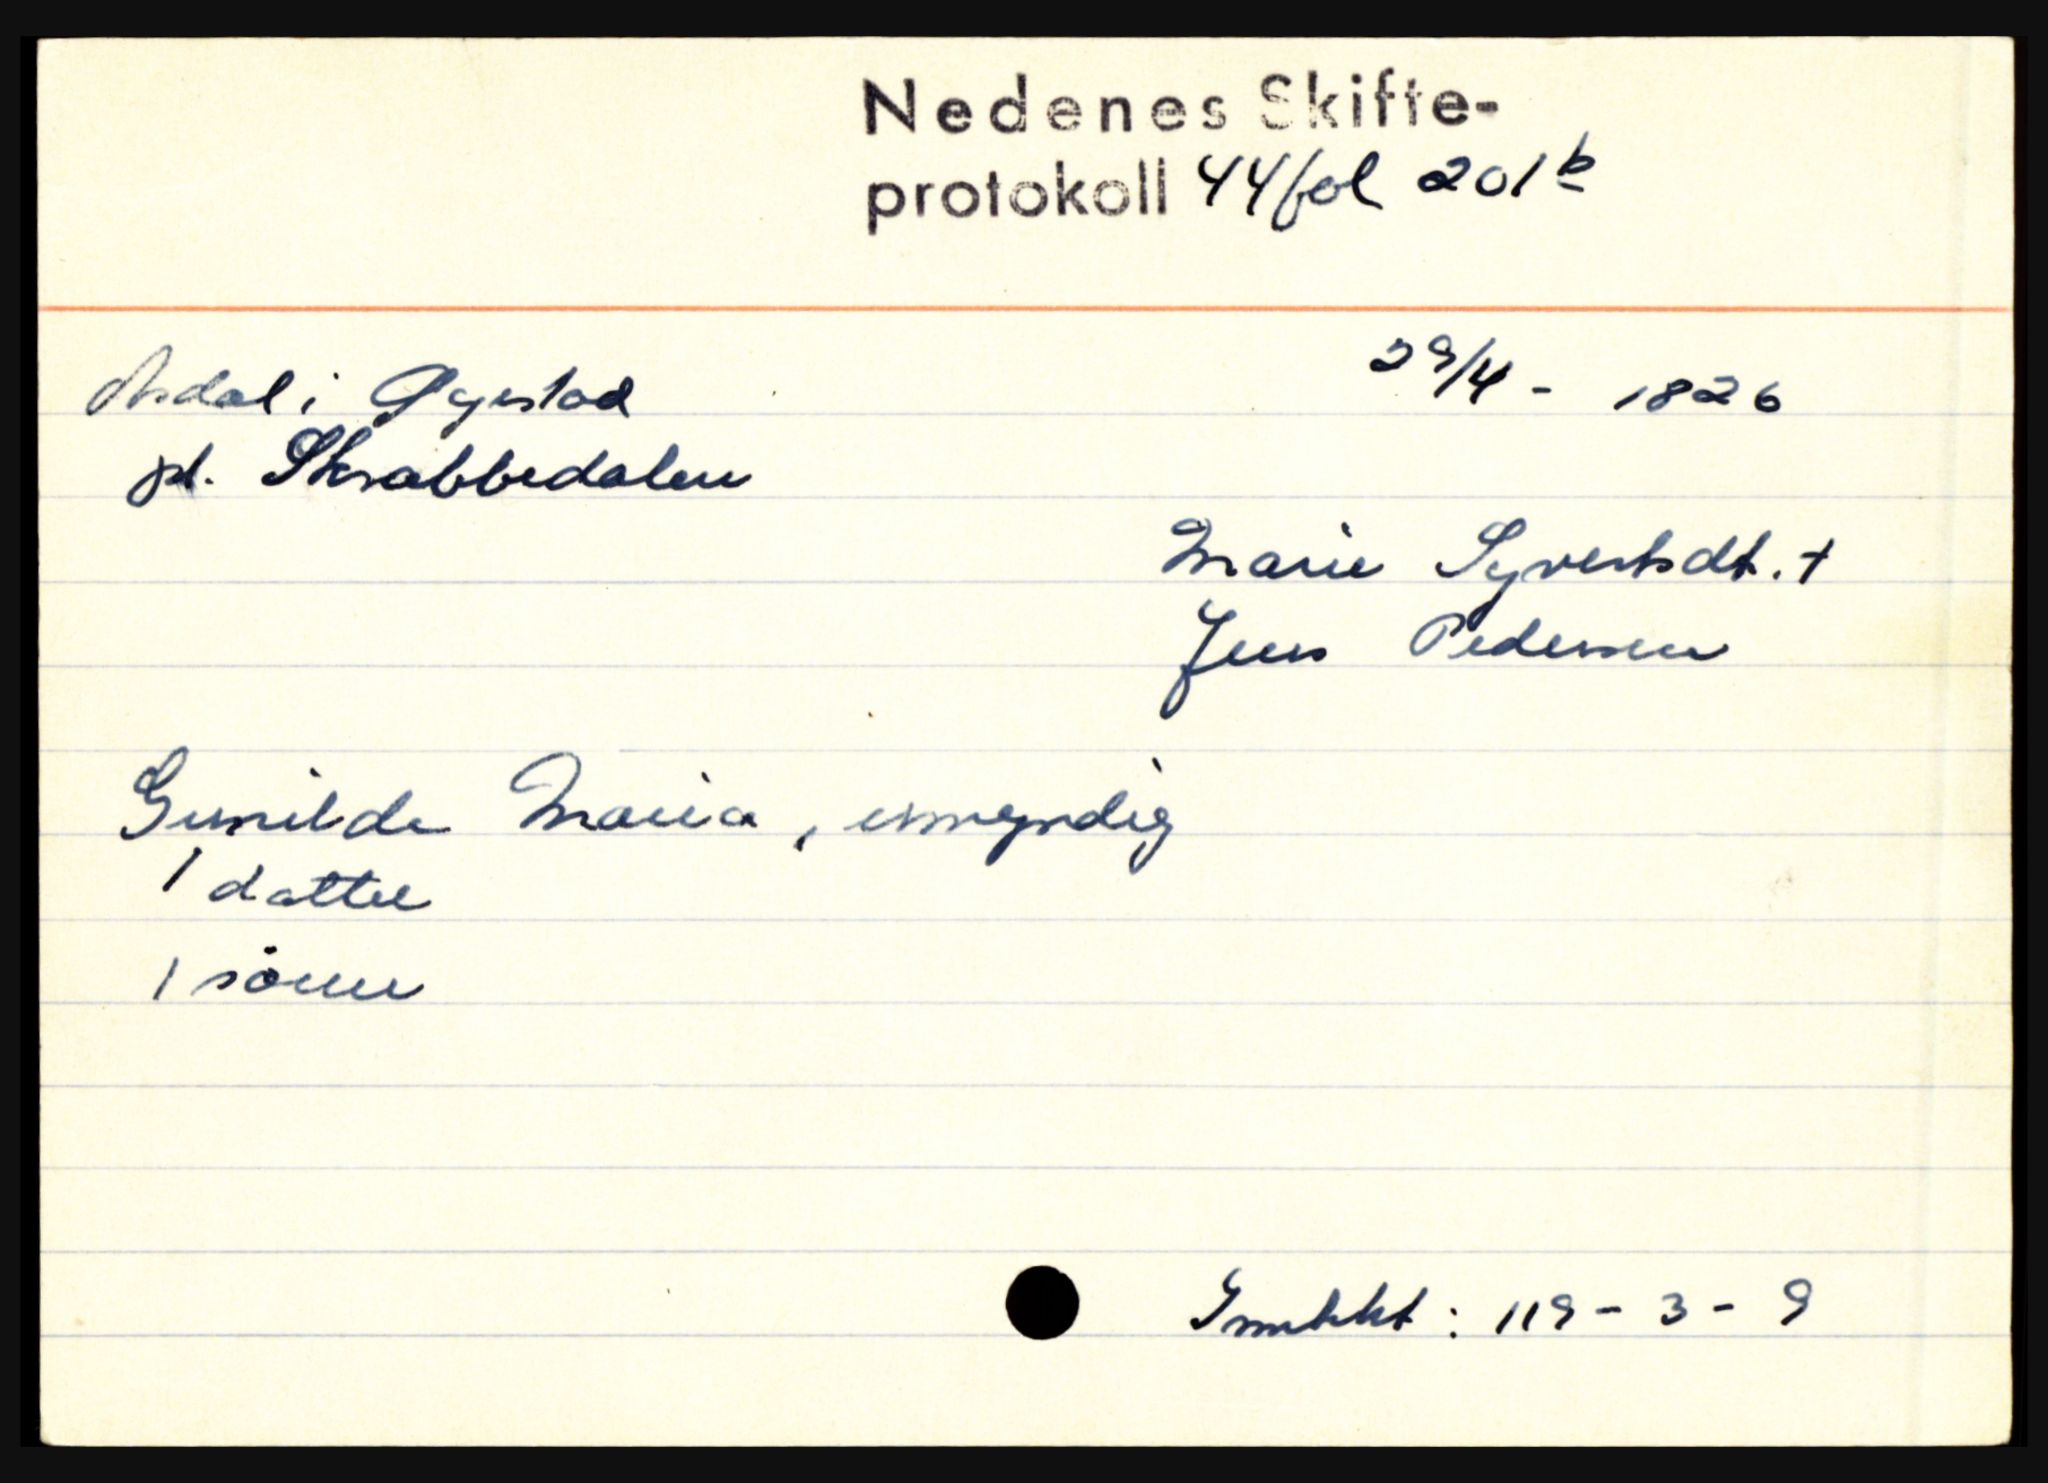 Nedenes Skifte-
protokoll 44 fol 201b
Asdal i Øyestad 29/4 - 1826
pl. Skrabbedalen
Marie Syvertsdt. +
Jens Pedersen
Gunilde Maria, umyndig
1 datter
1 sönn
119 - 3 - 9